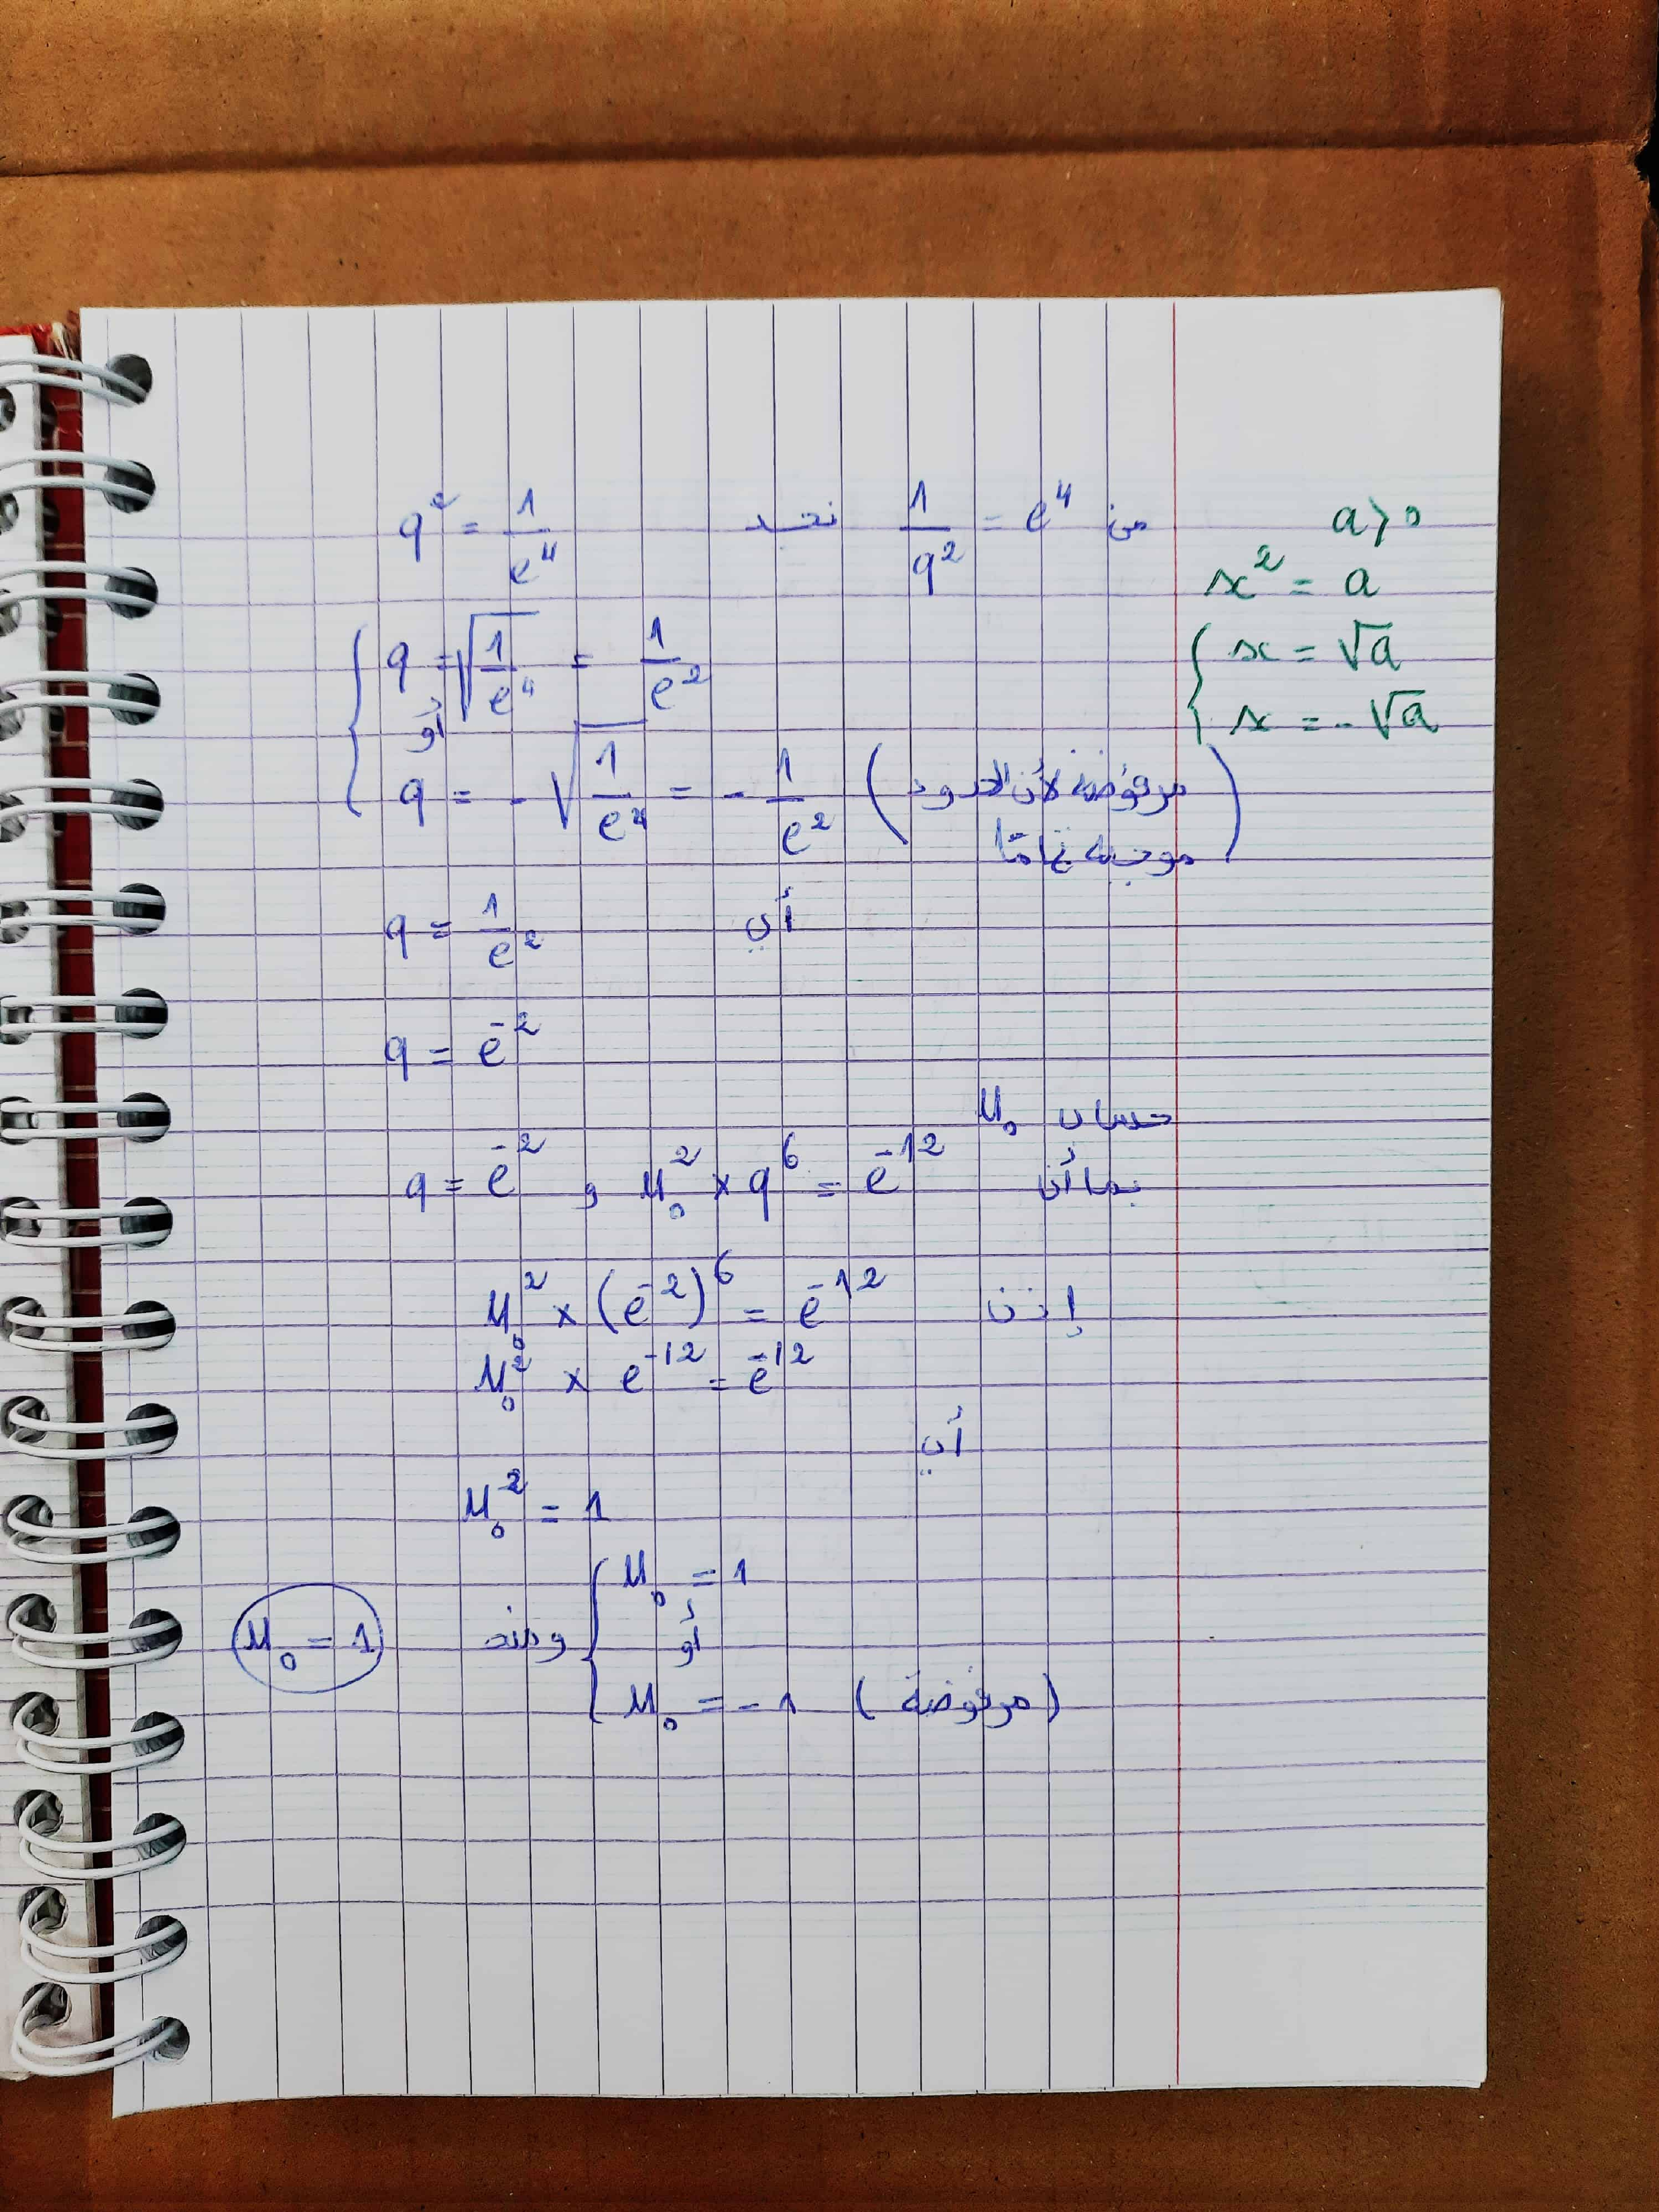 من 1/q² = e⁴ نجد q² = 1/e⁴
a > 0
x² = a
{ x = √a
x = -√a
{ q = √(1/e⁴) = 1/e²
أو
q = -√(1/e⁴) = -1/e² (مرفوضة لأن الحدود
موجبة تمامًا)
أي q = 1/e²
q = e⁻²
حساب u₀
بما أن u₀² × q⁶ = e⁻¹² و q = e⁻²
إذن u₀² × (e⁻²)⁶ = e⁻¹²
u₀² × e⁻¹² = e⁻¹²
أي
u₀² = 1
{ u₀ = 1
أو
u₀ = -1 (مرفوضة)
ومنه u₀ = 1